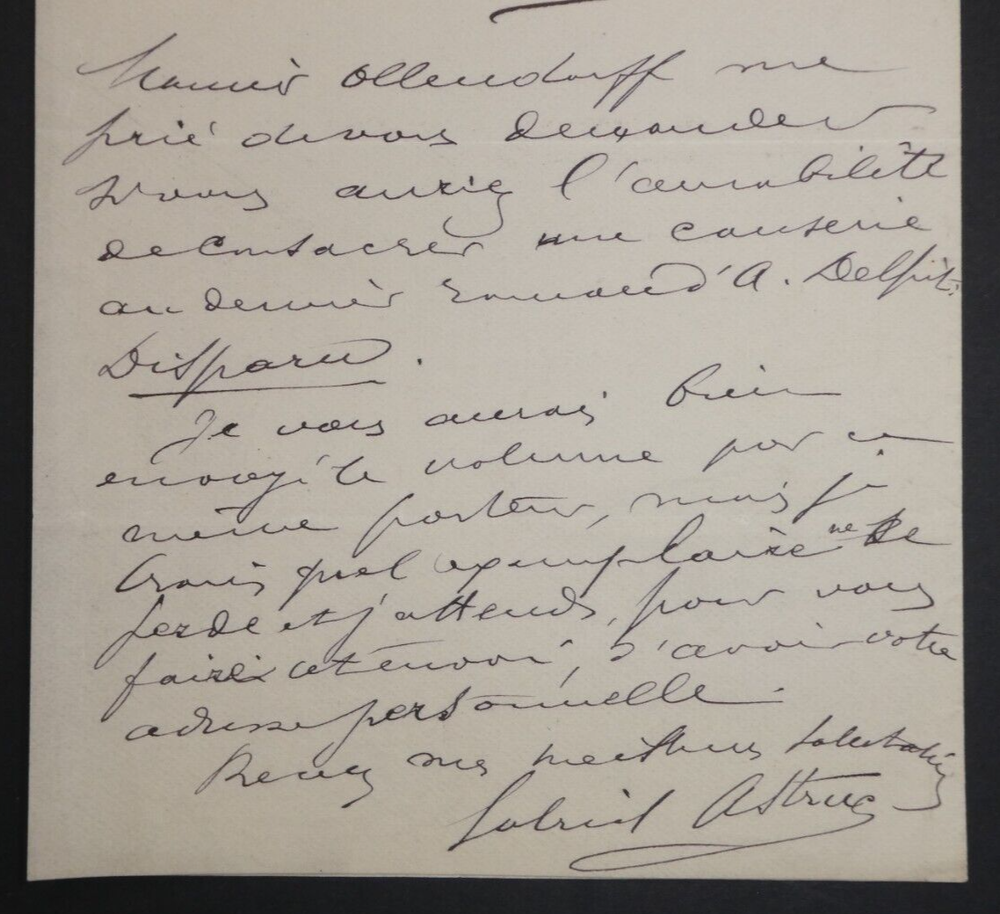 Monsieur Ollendorff me
prie de vous demander
si vous auriez l'amabilité
de consacrer une causerie
au dernier roman d'A. Delpit:
Disparu.
Je vous aurais bien
envoyé le volume par ce
même porteur, mais je
crains que l'exemplaire ne se
perde et j'attends, pour vous
faire cet envoi, d'avoir votre
adresse personnelle.
Recevez mes meilleures salutations
Gabriel Astruc